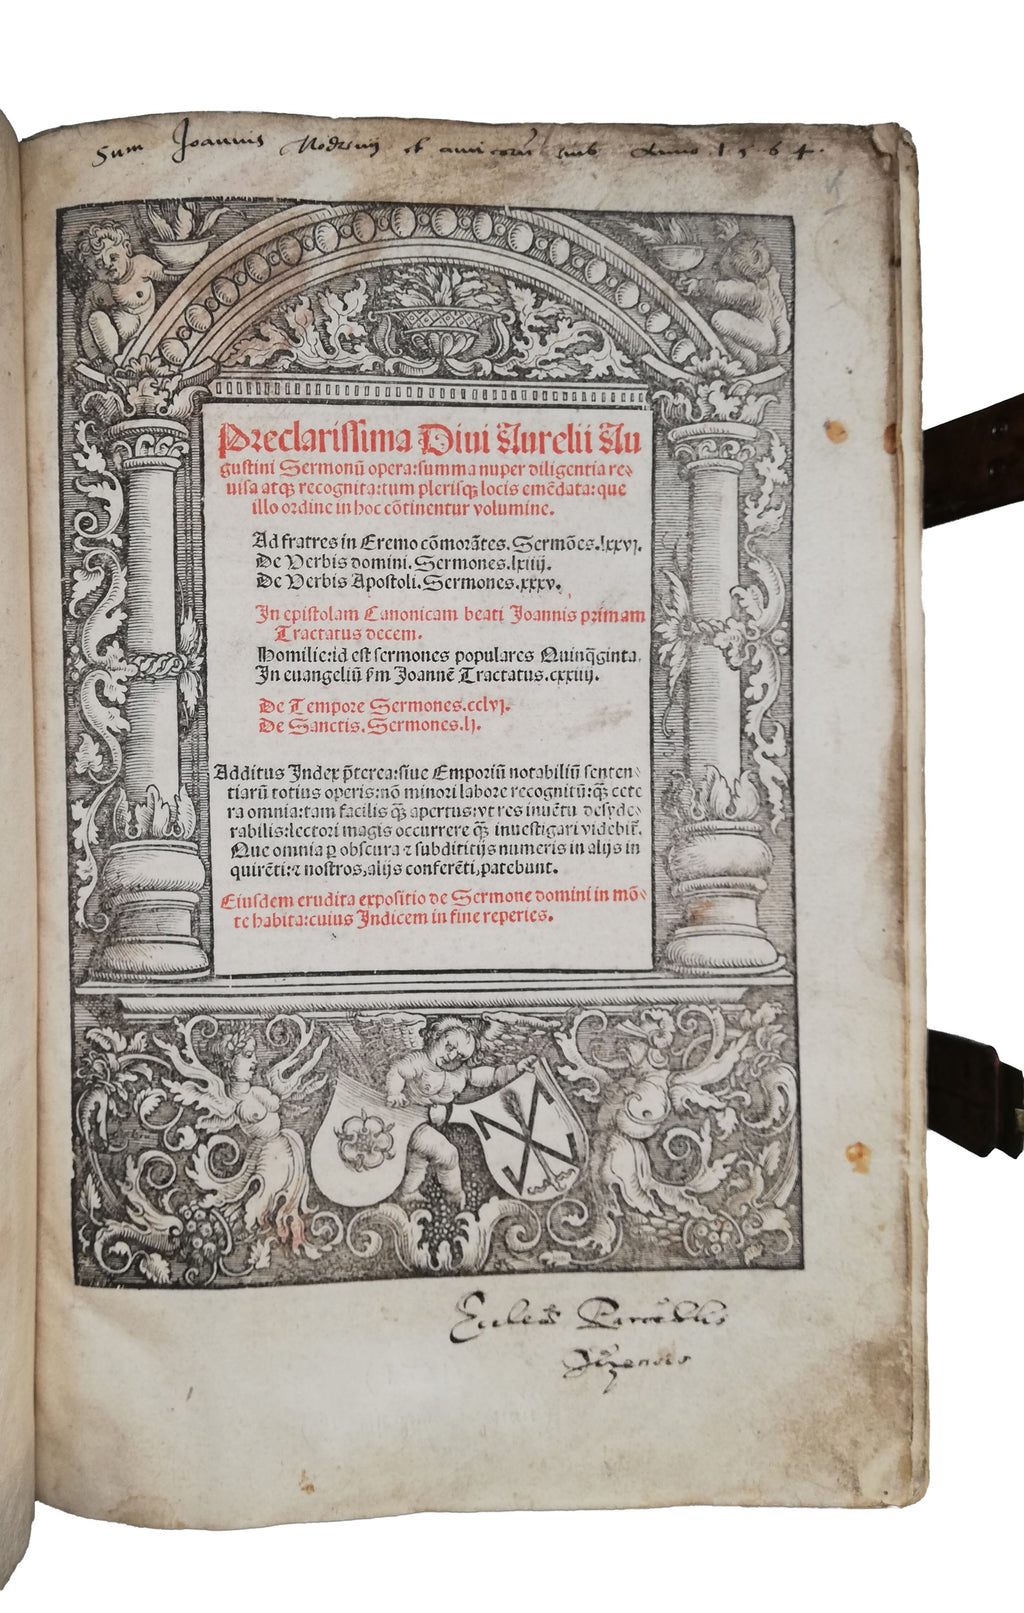 Sum Joannis & amicorū Anno 1564.
Preclarissima Diui Aurelii Au
gustini Sermonū opera:summa nuper diligentia re⸗
uisa atqꝫ recognita:tum plerisqꝫ locis emēdata:que
illo ordine in hoc cōtinentur volumine.
Ad fratres in Eremo cōmorātes.Sermōes.lxxvj.
De Verbis domini.Sermones.lxiiij.
De Verbis Apostoli.Sermones.xxxv.
In epistolam Canonicam beati Joannis primam
Tractatus decem.
Homilie:id est sermones populares Quinq̄ginta.
In euangeliū ẜm Joannē Tractatus.cxxiiij.
De Tempore Sermones.cclvj.
De Sanctis.Sermones.lj.
Additus Index p̄terea:siue Emporiū notabiliū senten⸗
tiarū totius operis:nō minori labore recognitū:qꝫ cete
ra omnia:tam facilis qꝫ apertus:vt res inuētu desyde⸗
rabilis:lectori magis occurrere qꝫ inuestigari videbit̄.
Que omnia ꝑ obscura ⁊ subdititijs numeris in alijs in
quirēti:⁊ nostros,alijs conferēti,patebunt.
Eiusdem erudita expositio de Sermone domini in mō⸗
te habita:cuius Indicem in fine reperies.